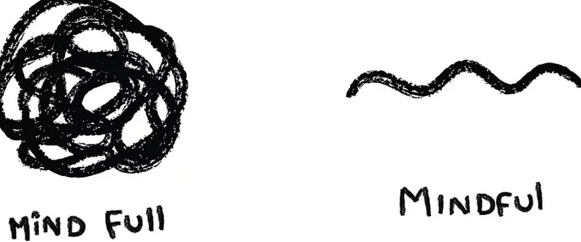 MiND FUll
MINDFUl